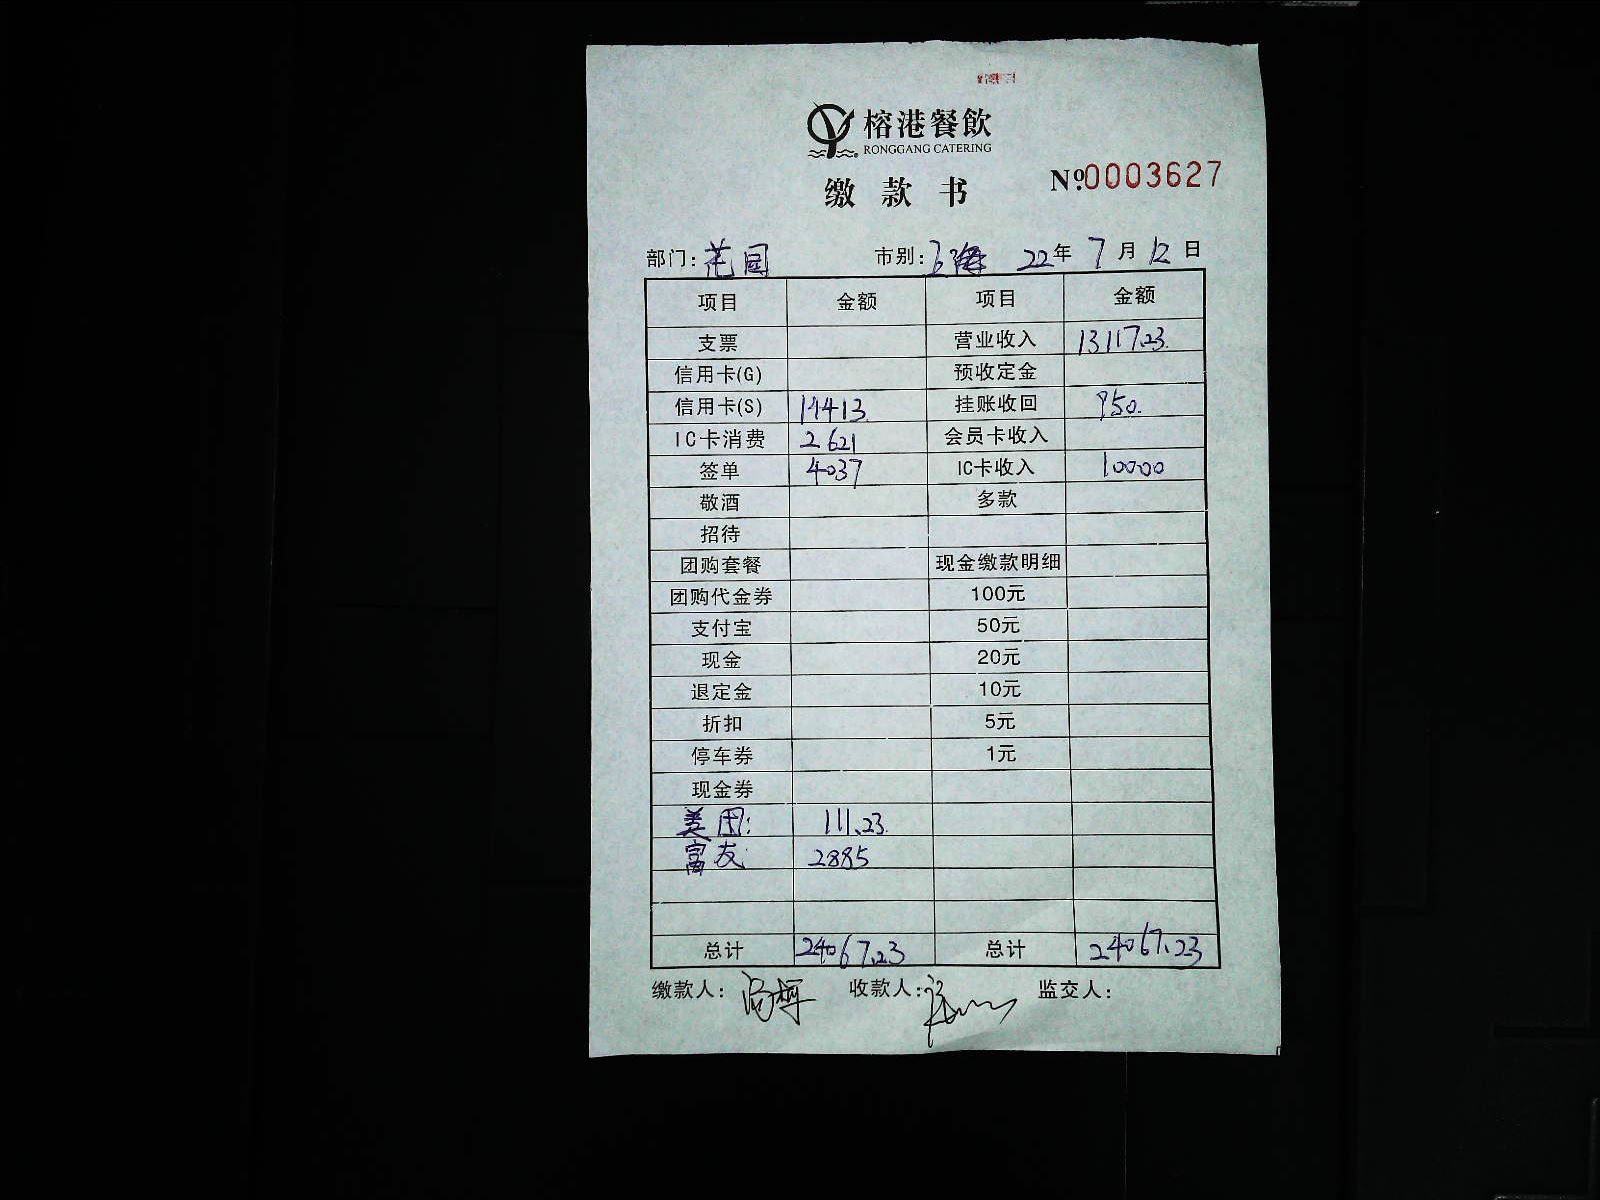 榕港餐飲
RONGGANG CATERING
缴款书
Nº.0003627
部门：花园 市别：上海 22年7月12日
项目 金额 项目 金额
支票 营业收入 13117.23
信用卡(G) 预收定金
信用卡(S) 14413 挂账收回 950.
IC卡消费 2621 会员卡收入
签单 4037 IC卡收入 10000
敬酒 多款
招待
团购套餐 现金缴款明细
团购代金券 100元
支付宝 50元
现金 20元
退定金 10元
折扣 5元
停车券 1元
现金券
美团： 111.23
富友 2885
总计 24067.23 总计 24067.23
缴款人： 收款人： 监交人：